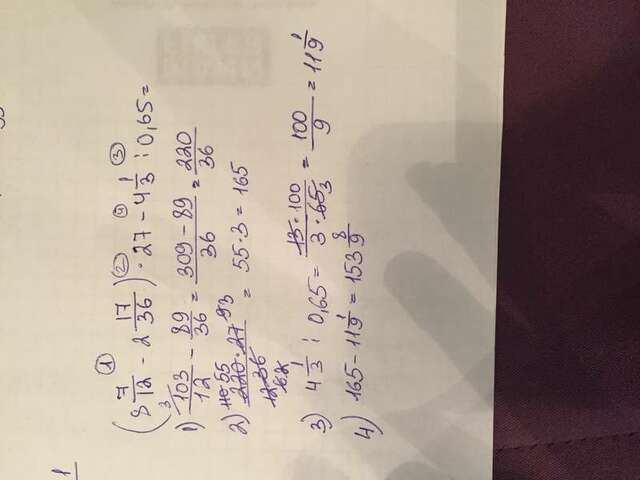 1
(8 7/12 - 2 17/36) · 27 - 4 1/3 : 0,65 =
1) 103/12 - 89/36 = 309 - 89/36 = 220/36
2) 220 · 27/36 = 55 · 3 = 165
3) 4 1/3 : 0,65 = 13 · 100/3 · 65 = 100/9 = 11 1/9
4) 165 - 11 1/9 = 153 8/9